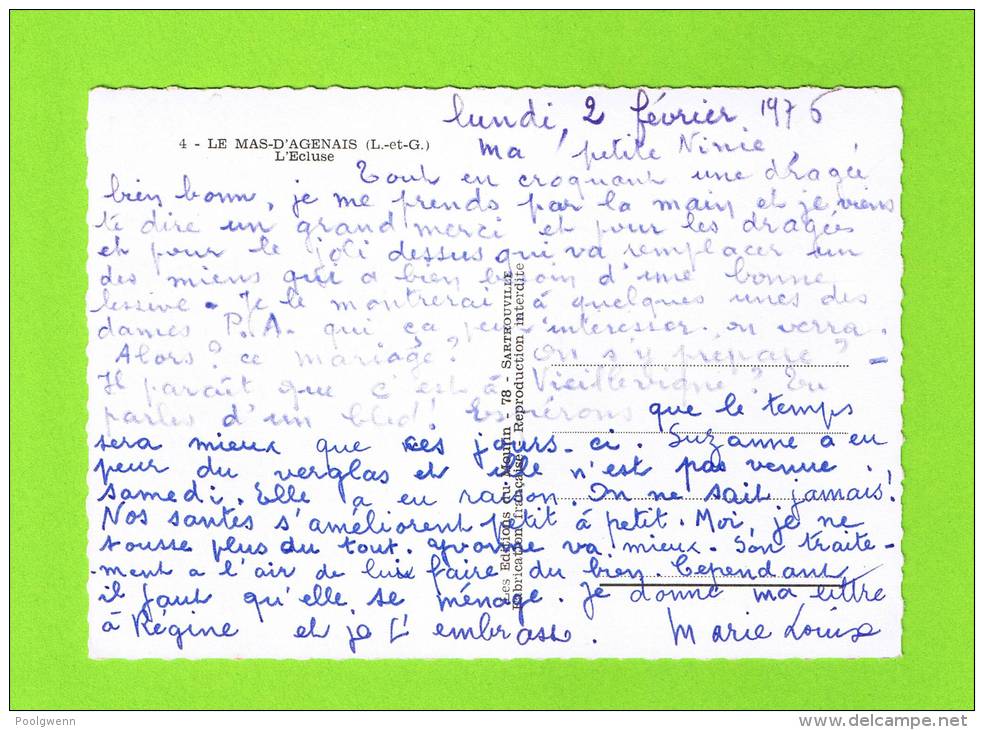 lundi, 2 février 1976
4 - LE MAS-D'AGENAIS (L.-et-G.)
L'Ecluse
Ma petite Ninie,
Tout en croquant une dragée
bien bonn, je me prends par la main et je viens
te dire un grand merci et pour les dragées
et pour le joli dessus qui va remplacer un
des miens qui a bien besoin d'une bonne
lessive. Je le montrerai à quelques unes des
dames P.A. qui ça peut intéresser. on verra.
Alors? ce mariage? On s'y prépare? -
Il paraît que c'est à Vieillevigne? Tu
parles d'un bled! Espérons que le temps
sera mieux que ces jours-ci. Suzanne a eu
peur du verglas et elle n'est pas venue
samedi. Elle a eu raison. On ne sait jamais!
Nos santés s'améliorent petit à petit. Moi, je ne
tousse plus du tout. Yvonne va mieux. Son traite-
-ment a l'air de lui faire du bien. Cependant
il faut qu'elle se ménage. Je donne ma lettre
à Régine et je t'embrasse. Marie Louise
Les Editions du Moulin - 78 - SARTROUVILLE
Fabrication française - Reproduction interdite
Poolgwenn
www.delcampe.net